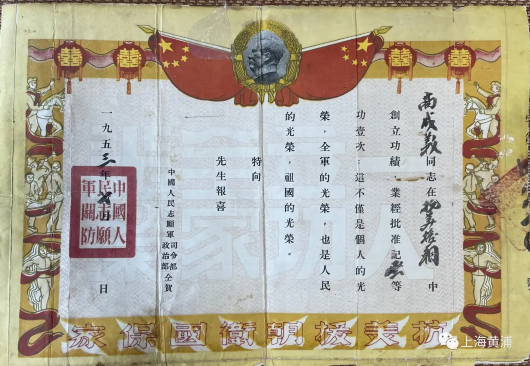 囍 囍 囍 囍
同志在 中
創立功績,業經批准記 等
功壹次;這不僅是個人的光
榮,全軍的光榮,也是人民
的光榮,祖國的光榮。
特向
先生報喜
中國人民志願軍司令部政治部仝賀
一九五三年 月 日
中國人民志願軍關防
抗美援朝衛國保家
上海黄浦